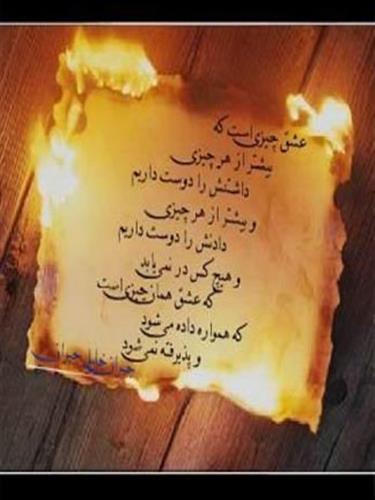 عشق چیزی است که
بیشتر از هر چیزی
داشتنش را دوست داریم
و بیشتر از هر چیزی
دادنش را دوست داریم
و هیچ کس در نمی یابد
که عشق همان چیزی است
که همواره داده می شود
و پذیرفته نمی شود
جبران خلیل جبران